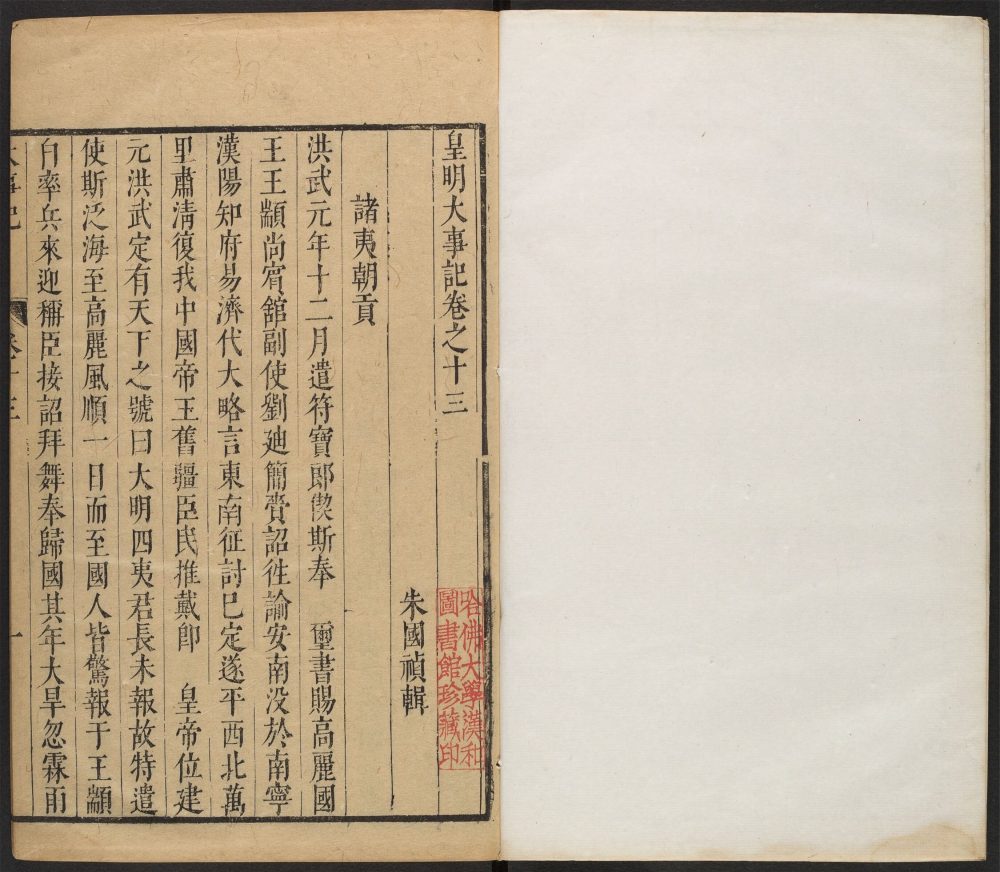 皇明大事記卷之十三
朱國禎輯
哈佛大學漢和
圖書館珍藏印
諸夷朝貢
洪武元年十二月遣符寶郎偰斯奉 璽書賜高麗國
王王顓尚賓舘副使劉迪簡賫詔徃諭安南没於南寧
漢陽知府易濟代大略言東南征討已定遂平西北萬
里肅清復我中國帝王舊疆臣民推戴卽 皇帝位建
元洪武定有天下之號曰大明四夷君長未報故特遣
使斯泛海至高麗風順一日而至國人皆驚報于王顓
自率兵來迎稱臣接詔拜舞奉歸國其年大旱忽霖雨
大事記 卷十三 一